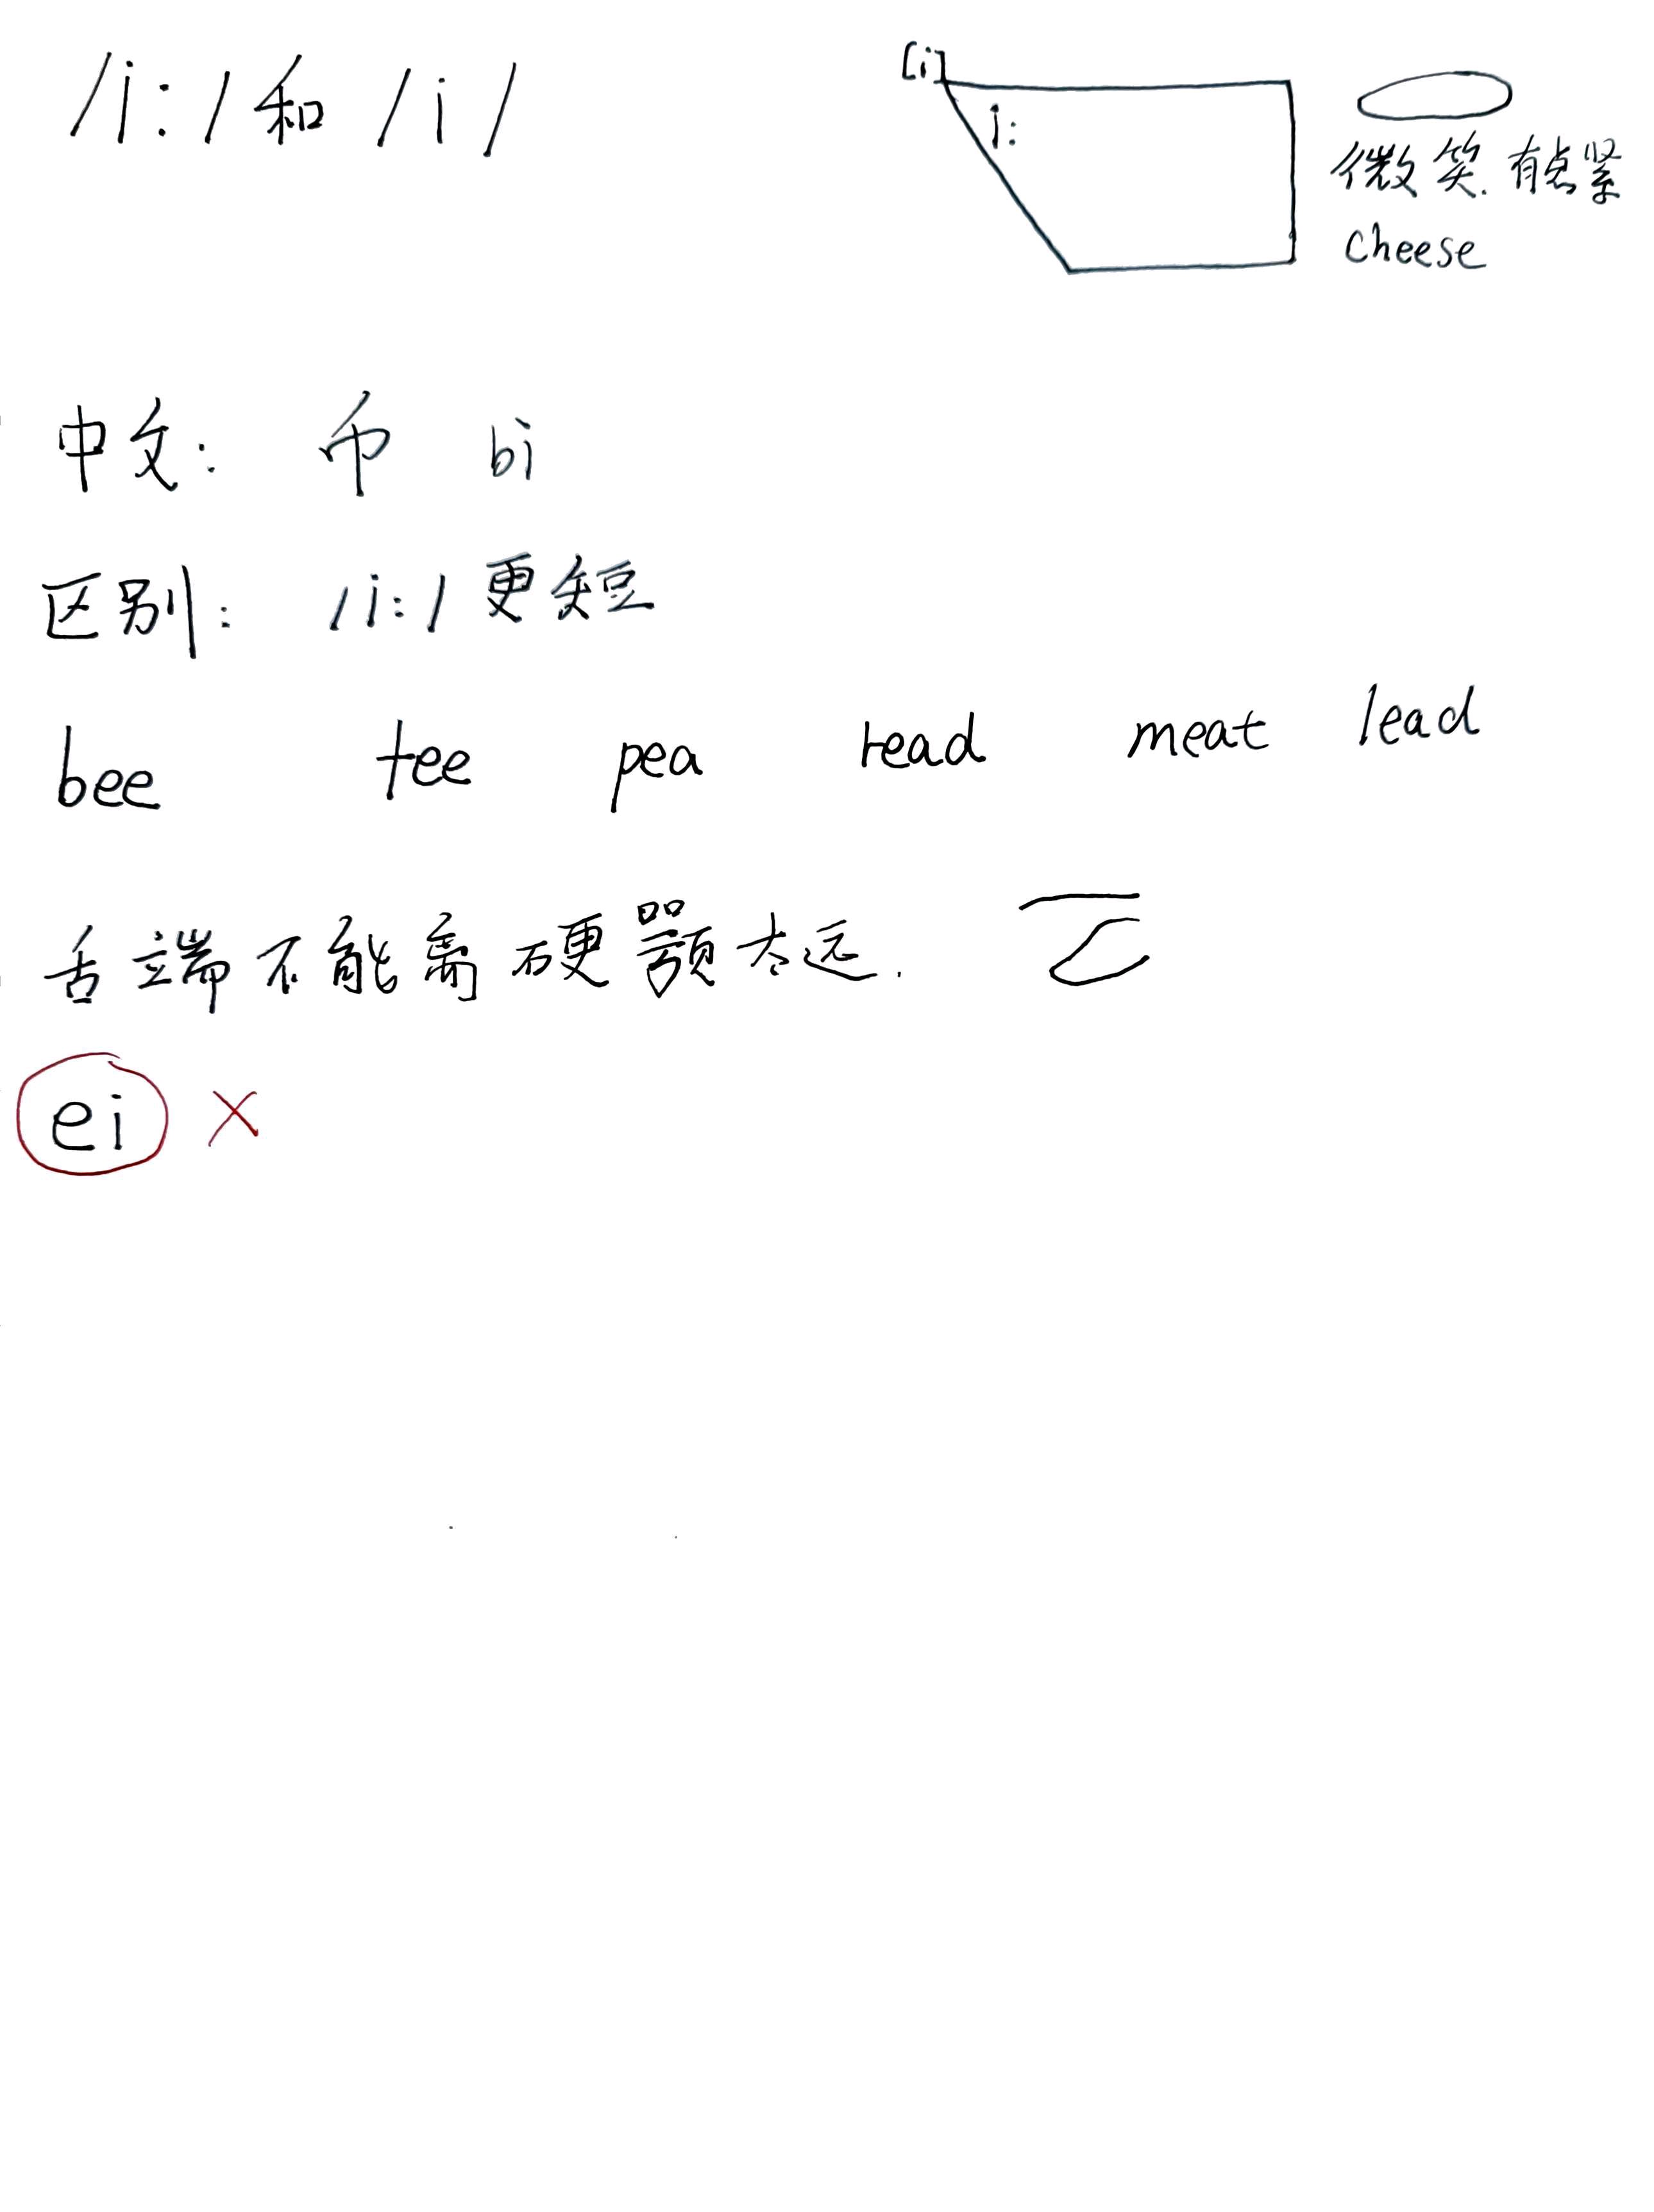 /i:/ 和 /i/
[i]
i:
微笑.有点紧
Cheese
中文: 币 bi
区别: /i:/ 更短
bee tee pea read meat lead
舌端不能离硬颚太远.
ei ×